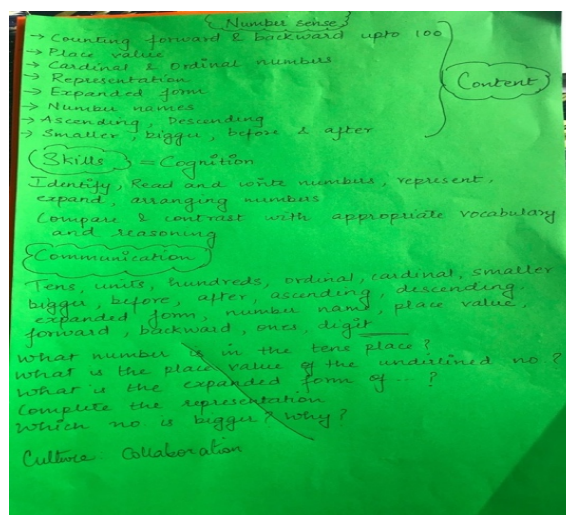 Number sense
→ Counting forward & backward upto 100
→ Place value
→ Cardinal & Ordinal numbers
→ Representation
→ Expanded form
→ Number names
→ Ascending, Descending
→ Smaller, bigger, before & after
Content
Skills = Cognition
Identify, Read and write numbers, represent,
expand, arranging numbers
Compare & contrast with appropriate vocabulary
and reasoning
Communication
Tens, units, hundreds, ordinal, cardinal, smaller
bigger, before, after, ascending, descending,
expanded form, number name, place value,
forward, backward, ones, digit
What number is in the tens place?
What is the place value of the underlined no?
What is the expanded form of ... ?
Complete the representation
Which no is bigger? Why?
Culture Collaboration